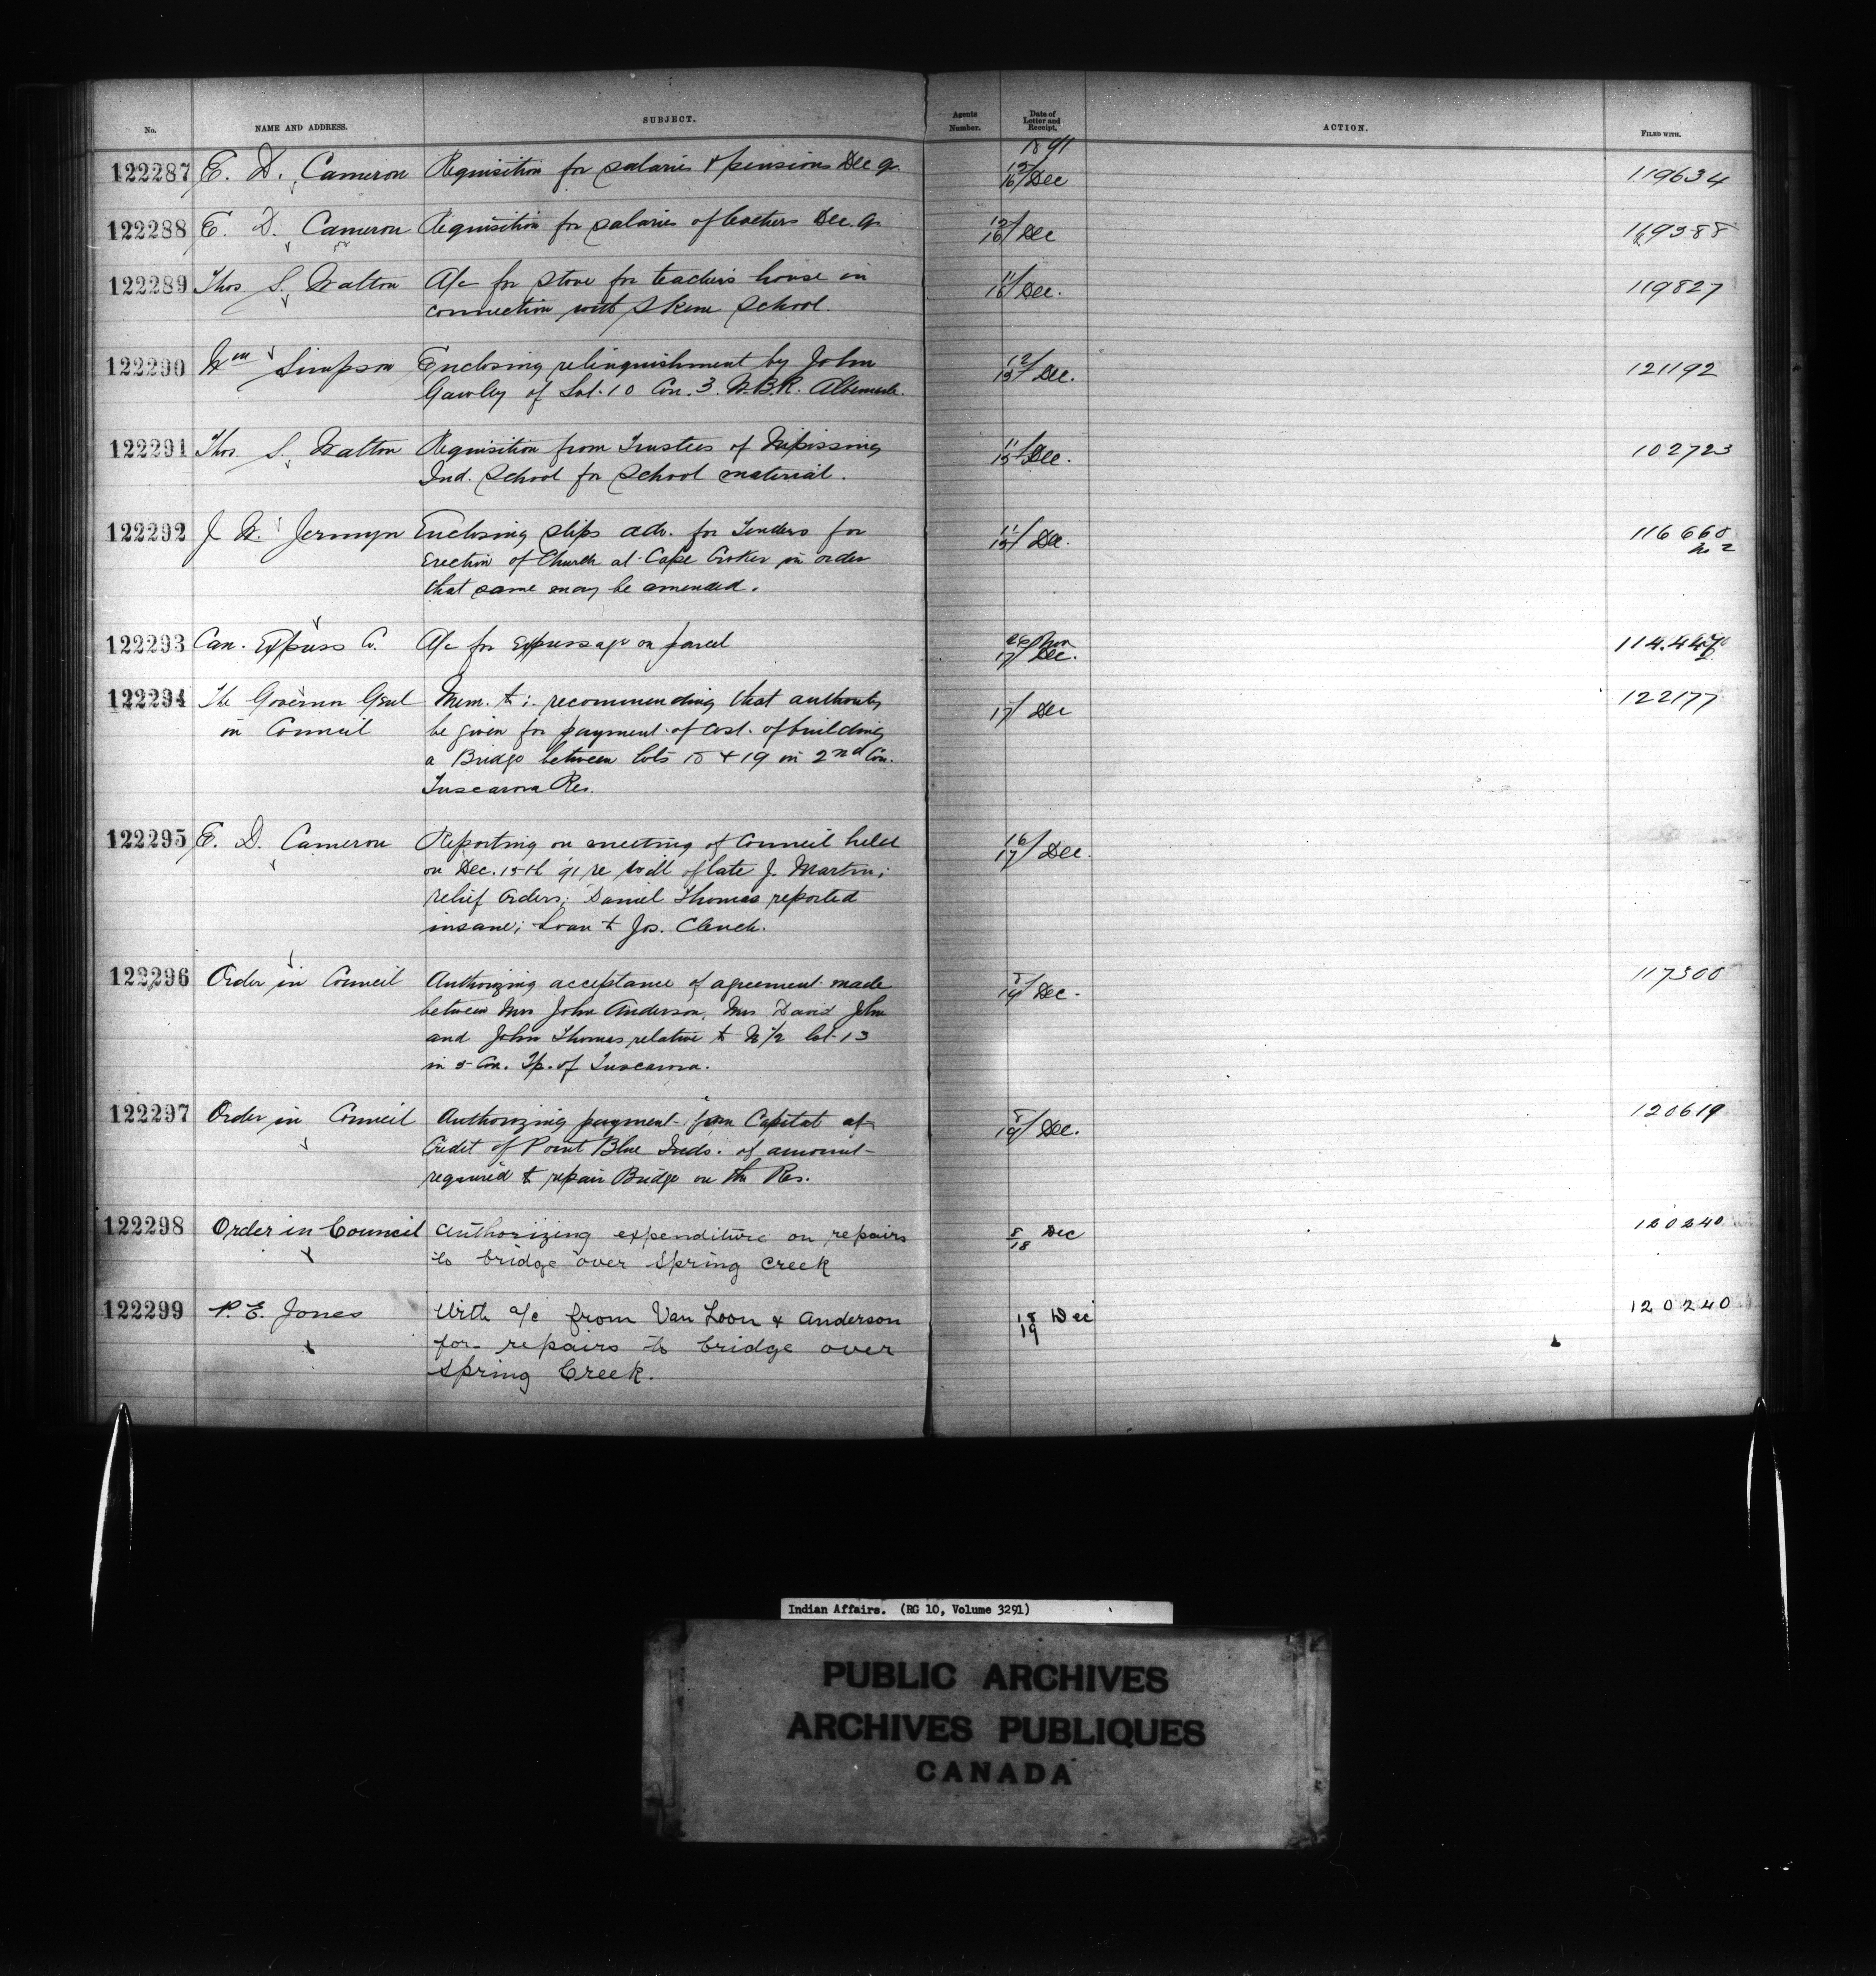 No. NAME AND ADDRESS. SUBJECT. Agents Number. Date of Letter and Receipt. ACTION. FILED WITH.
1891
122287 E. D. Cameron Requisition for salaries & pensions Dec qr. 15/16 Dec 119634
122288 E. D. Cameron Requisition for salaries of teachers Dec. qr. 15/16 Dec 119388
122289 Thos. S. Walton A/c for stove for teacher's house in 11/16 Dec. 119827
connection with Skene School.
122290 Wm Simpson Enclosing relinquishment by John 12/15 Dec. 121192
Gawley of Lot. 10 Con. 3. W.B.R. Albemarle.
122291 Thos. S. Walton Requisition from Trustees of Nipissing 11/15 Dec. 102723
Ind. School for School material.
122292 J. W. Jermyn Enclosing slips adv. for Tenders for 11/15 Dec. 116660
Erection of Church at Cape Croker in order No 2
that same may be amended.
122293 Can. Express Co. A/c for Expressage on parcel 26 Nov
17 Dec.
122294 The Governor Genl Mem. to : recommending that authority 17/ Dec 122177
in Council be given for payment of cost. of building
a Bridge between lots 18 & 19 in 2nd Con.
Tuscarora Res.
122295 E. D. Cameron Reporting on meeting of Council held 16/17 Dec.
on Dec. 15th '91 re will of late J. Martin;
relief Orders; Daniel Thomas reported
insane; Loan to Jos. Clench.
122296 Order in Council Authorizing acceptance of agreement made Dec. 117300
between Mrs John Anderson, Mrs David John
and John Thomas relative to N 1/2 lot 13
in 5 Con. Tp. of Tuscarora.
122297 Order in Council Authorizing payment from Capital at Dec. 120619
Credit of Point Blue Inds. of amount
required to repair Bridge on the Res.
122298 Order in Council Authorizing expenditure on repairs 8/18 Dec 120240
to bridge over Spring Creek
122299 P. E. Jones With a/c from Van Loon & Anderson 18/19 Dec 120240
for repairs to bridge over
Spring Creek.
Indian Affairs. (RG 10, Volume 3291)
PUBLIC ARCHIVES
ARCHIVES PUBLIQUES
CANADA